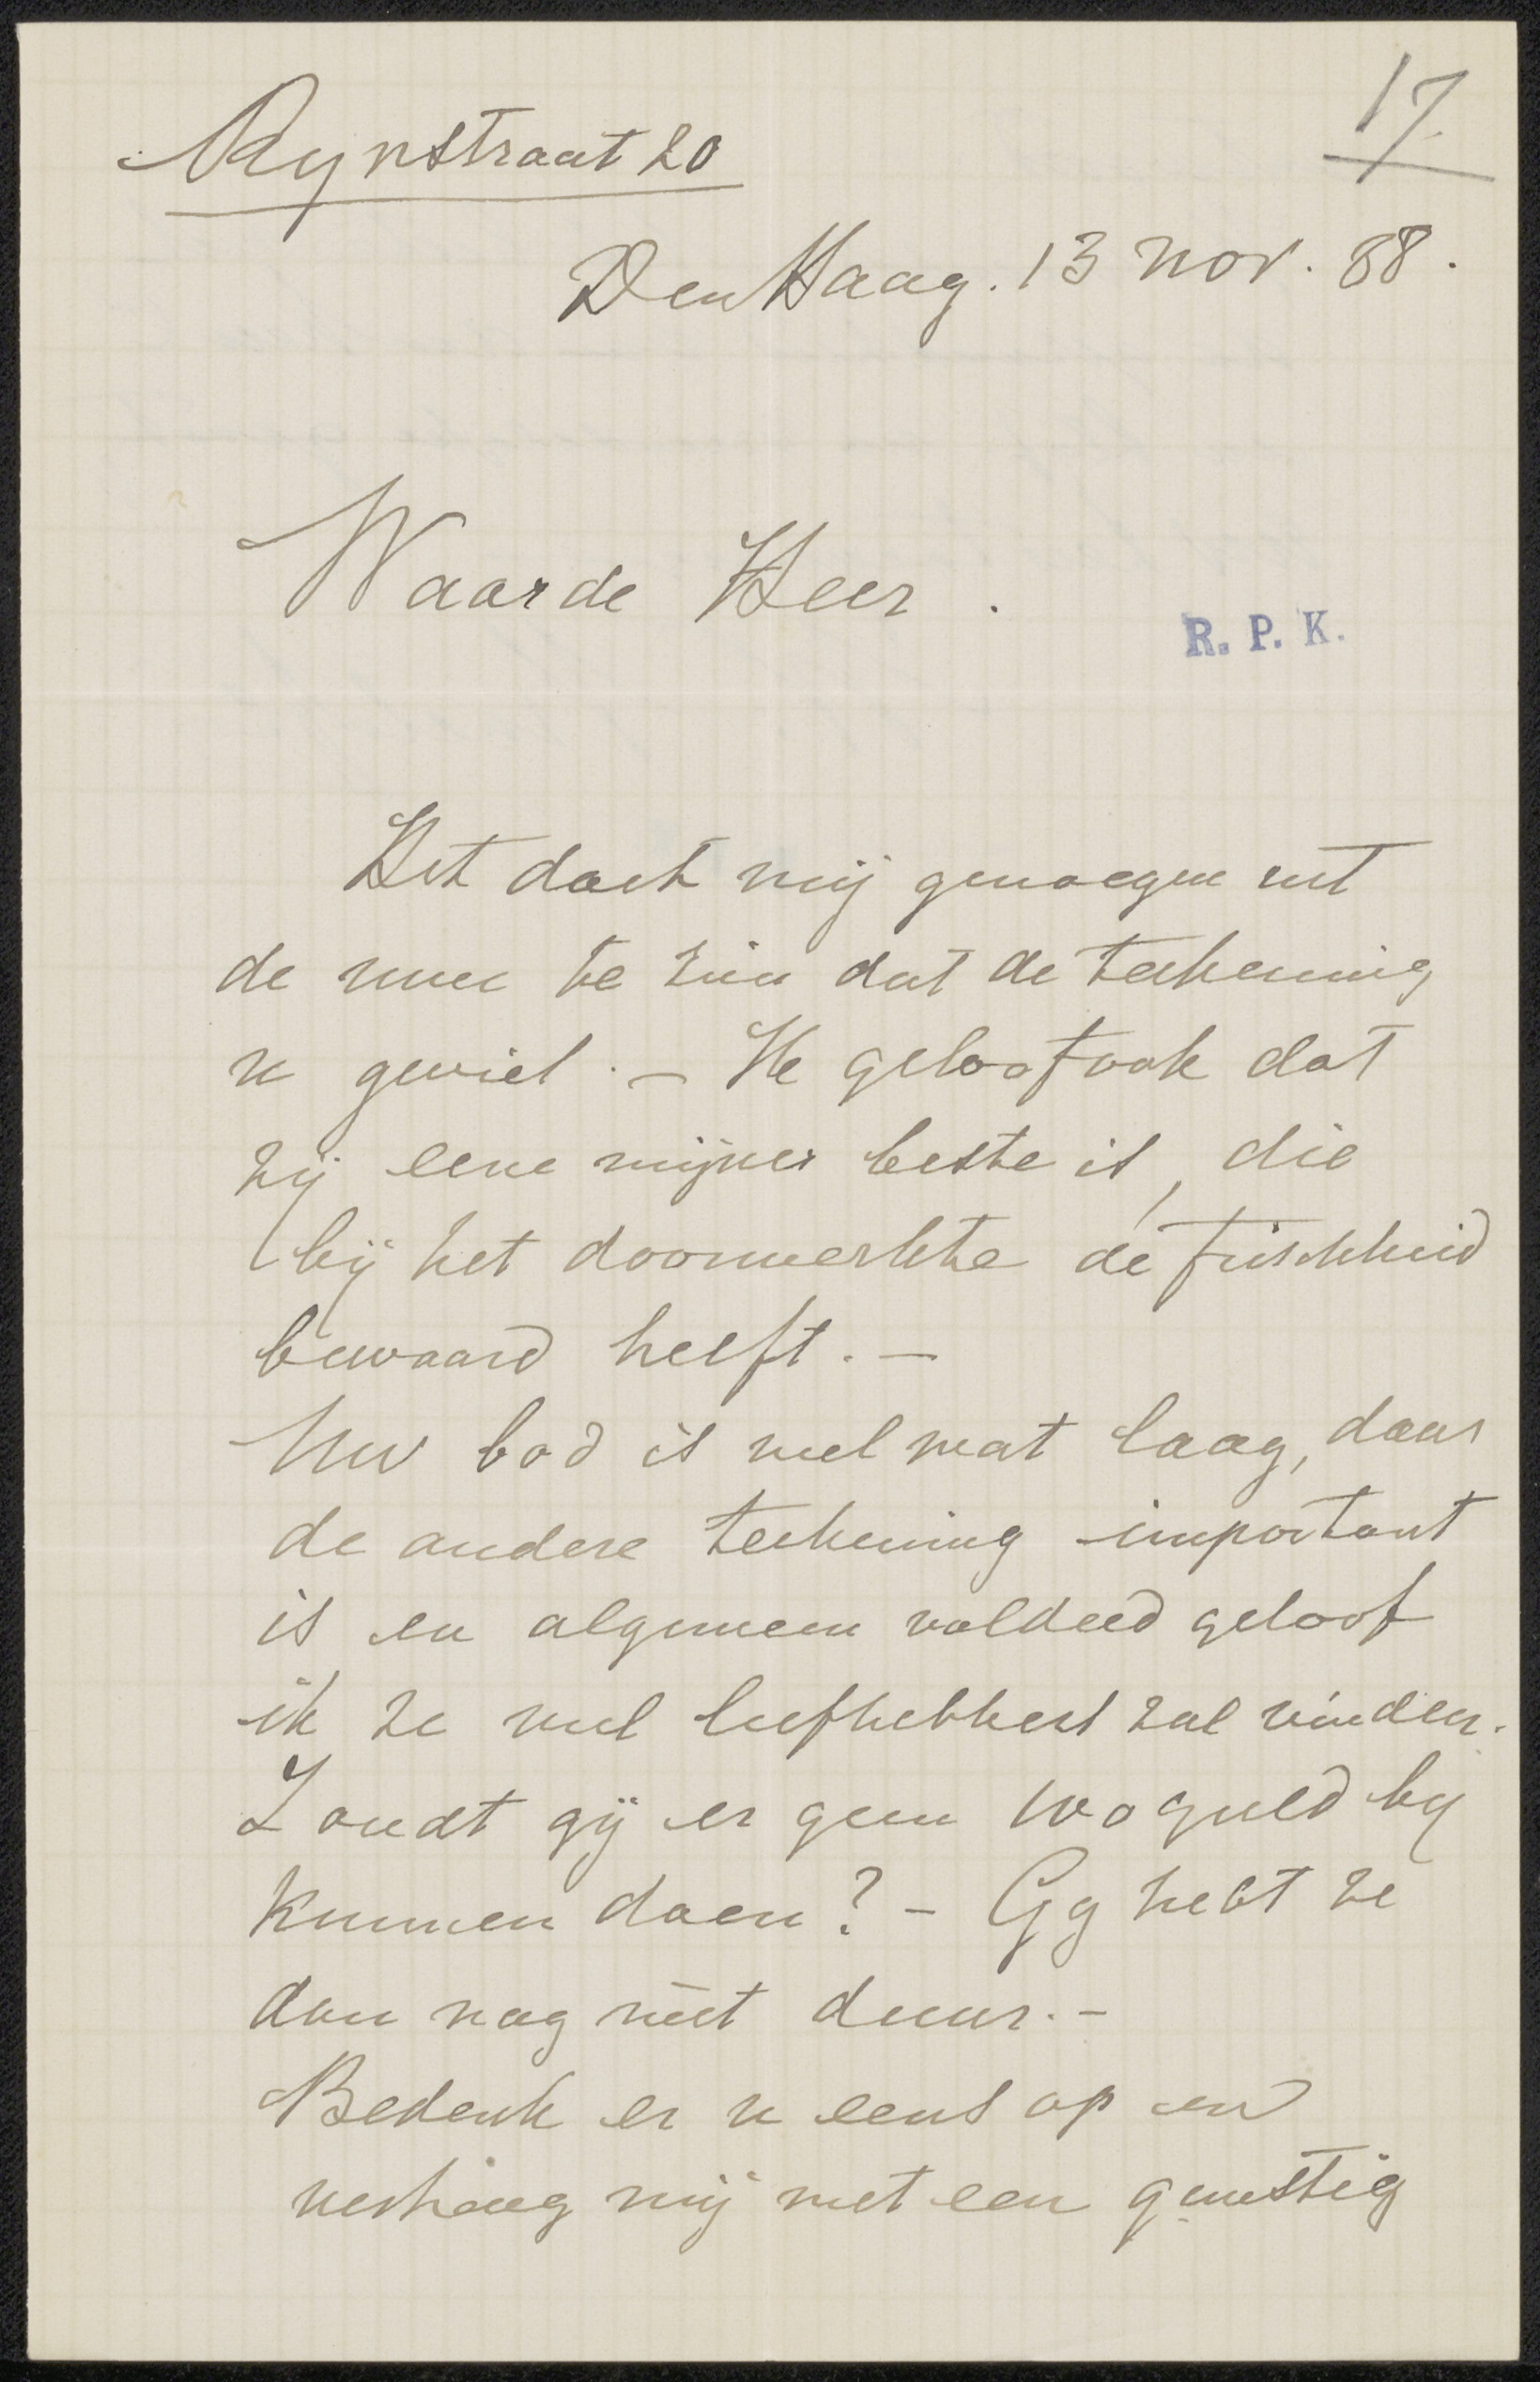 17.
Rynstraat 20
Den Haag. 13 Nov. 88.
Waarde Heer.
R. P. K.
Het doet mij genoegen uit
de uwe te zien dat de teekening
u geviel. — Ik geloof ook dat
zij eene mijner beste is, die
bij het doorwerkte de frischheid
bewaard heeft. —
Uw bod is wel wat laag, daar
de andere teekening important
is en algemeen voldeed geloof
ik ze wel liefhebbers zal vinden.
Zoudt gij er geen 100 guld by
kunnen doen? — Gy hebt ze
dan nog niet duur. —
Bedenk er u eens op en
verheug mij met een gunstig